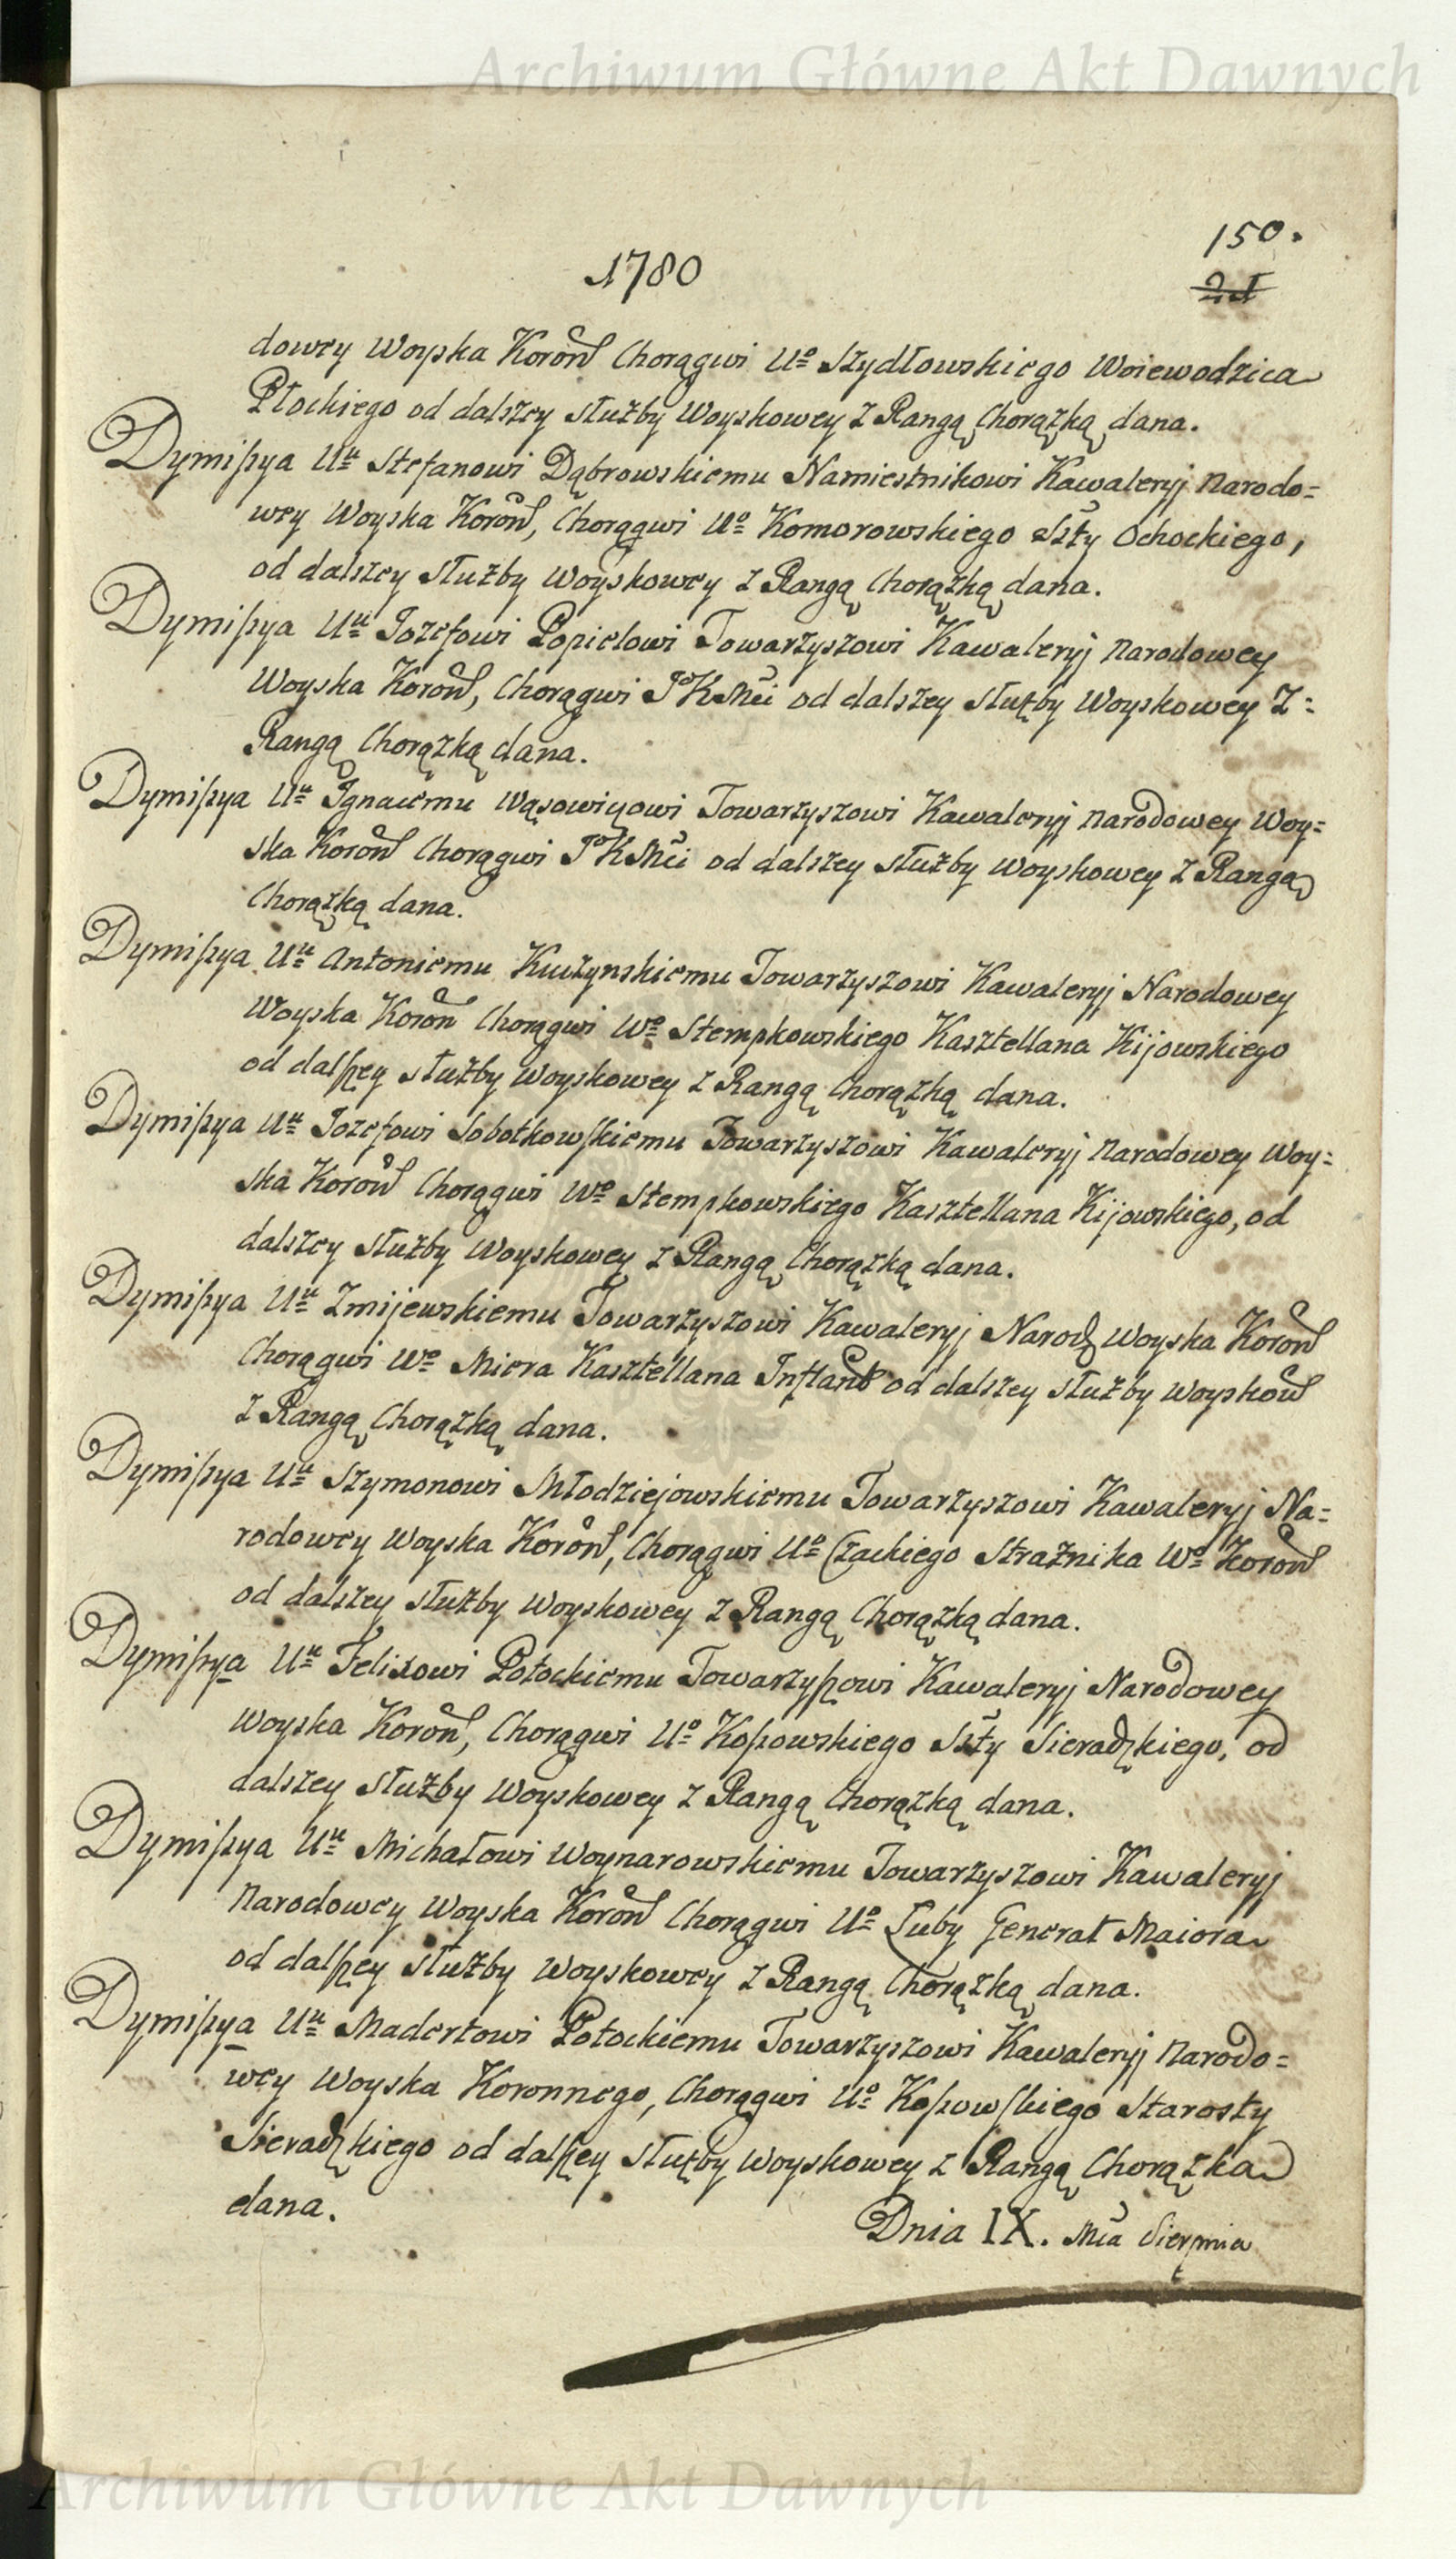 Archiwum Główne Akt Dawnych
150.
1780
dowey Woyska Koron Chorągwi Uº Szydłowskiego Woiewodzica
Płockiego od dalszey służby Woyskowey z Rangą Chorązką dana.
Dymissya Uu Stefanowi Dąbrowskiemu Namiestnikowi Kawaleryj Narodo=
wey Woyska Koron, Chorągwi Uº Komorowskiego Ssty Ochockiego,
od dalszey służby Woyskowey z Rangą Chorązką dana.
Dymissya Uu Jozefowi Popielowi Towarzyszowi Kawaleryj Narodowey
Woyska Koron, Chorągwi JºKMci od dalszey służby Woyskowey z=
Rangą Chorązką dana.
Dymissya Uu Ignacemu Wąsowiczowi Towarzyszowi Kawaleryj Narodowey Woy=
ska Koron Chorągwi JºKMci od dalszey służby Woyskowey z Rangą
Chorązką dana.
Dymissya Uu Antoniemu Kuczynskiemu Towarzyszowi Kawaleryj Narodowey
Woyska Koron Chorągwi Wº Stempkowskiego Kasztellana Kijowskiego
od dalszey służby Woyskowey z Rangą Chorązką dana.
Dymissya Uu Jozefowi Sobotkowskiemu Towarzyszowi Kawaleryj Narodowey Woy=
ska Koron Chorągwi Wº Stempkowskiego Kasztellana Kijowskiego, od
dalszey służby Woyskowey z Rangą Chorązką dana.
Dymissya Uu Zmijewskiemu Towarzyszowi Kawaleryj Narod Woyska Koron
Chorągwi Wº Miera Kasztellana Inflant od dalszey służby Woyskow
z Rangą Chorązką dana.
Dymissya Uu Szymonowi Młodziejowskiemu Towarzyszowi Kawaleryj Na=
rodowey Woyska Koron, Chorągwi Uº Czackiego Strażnika Wº Koron
od dalszey służby Woyskowey z Rangą Chorązką dana.
Dymissya Uu Felixowi Potockiemu Towarzyszowi Kawaleryj Narodowey
Woyska Koron, Chorągwi Uº Kossowskiego Ssty Sieradzkiego, od
dalszey służby Woyskowey z Rangą Chorązką dana.
Dymissya Uu Michałowi Woynarowskiemu Towarzyszowi Kawaleryj
Narodowey Woyska Koron Chorągwi Uº Łuby Generał Maiora
od dalszey służby Woyskowey z Rangą Chorązką dana.
Dymissya Uu Potockiemu Towarzyszowi Kawaleryj Narodo=
wey Woyska Koronnego, Chorągwi Uº Kossowskiego Starosty
Sieradzkiego od dalszey służby Woyskowey z Rangą Chorązka
dana.
Dnia IX. Mca Sierpnia
Archiwum Główne Akt Dawnych